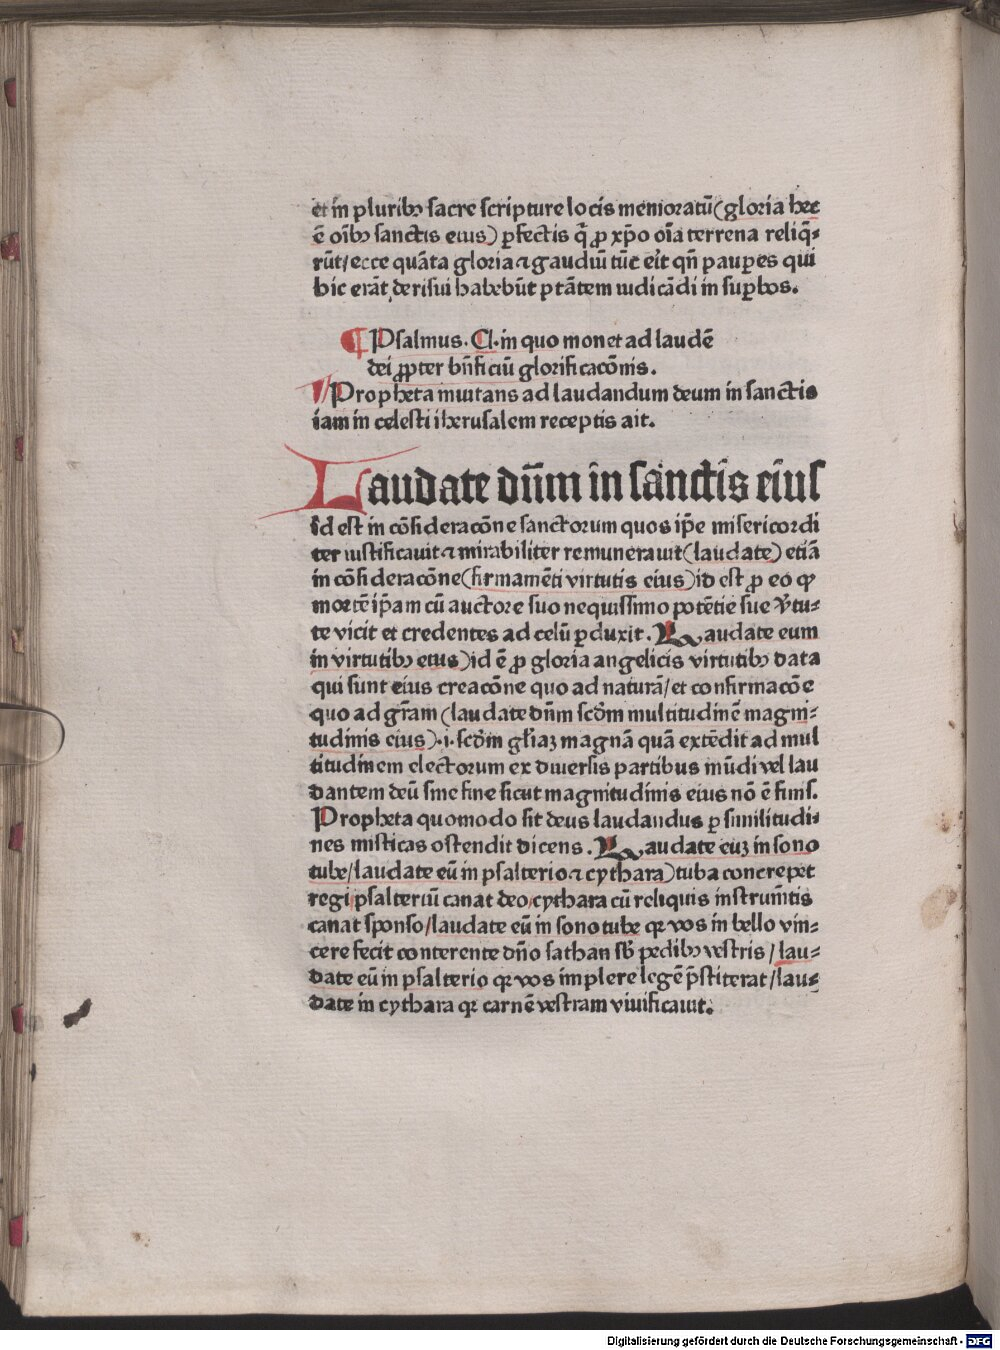 et in pluribꝰ sacre scripture locis memoratū (gloria hec
ē oībꝰ sanctis eius) ꝑfectis q̄ ꝓ xp̄o oīa terrena reliq̄-
rūt/ecce quāta gloria ⁊ gaudiū tūc eīt qn̄ pauꝑes qui
hic erāt derisui habebūt ptātem iudicādi in suꝑbos.
¶ Psalmus. Cl. in quo monet ad laudē
dei ꝓpter bn̄ficiū glorificacōnis.
Propheta inuitans ad laudandum deum in sanctis
iam in celesti iherusalem receptis ait.
Laudate dūm in sanctis eius
id est in cōsideracōne sanctorum quos ip̄e misericordi
ter iustificauit ⁊ mirabiliter remunerauit (laudate) etiā
in cōsideracōne (firmamēti virtutis eius) id est ꝓ eo ꝙ
mortē ip̄am cū auctore suo nequissimo potētie sue v̄tu-
te vicit et credentes ad celū ꝑduxit. Laudate eum
in virtutibꝰ eius) id ē ꝓ gloria angelicis virtutibꝰ data
qui sunt eius creacōne quo ad naturā/et confirmacōe
quo ad gr̄am (laudate dn̄m scd̄m multitudinē magni-
tudinis eius).i. scd̄m gl̄iaꝫ magnā quā extēdit ad mul
titudinem electorum ex diuersis partibus mūdi vel lau
dantem deū sine fine sicut magnitudinis eius nō ē finis.
Propheta quomodo sit deus laudandus ꝑ similitudi-
nes misticas ostendit dicens. Laudate euꝫ in sono
tube/laudate eū in psalterio ⁊ cythara) tuba concrepet
regi/psalteriū canat deo/cythara cū reliquis instrum̄tis
canat sponso/laudate eū in sono tube qꝛ vos in bello vin-
cere fecit conterente dn̄o sathan sb̄ pedibꝰ vestris/lau-
date eū in psalterio qꝛ vos implere legē p̄stiterat/lau-
date in cythara qꝛ carnē vestram viuificauit.
Digitalisierung gefördert durch die Deutsche Forschungsgemeinschaft - DFG